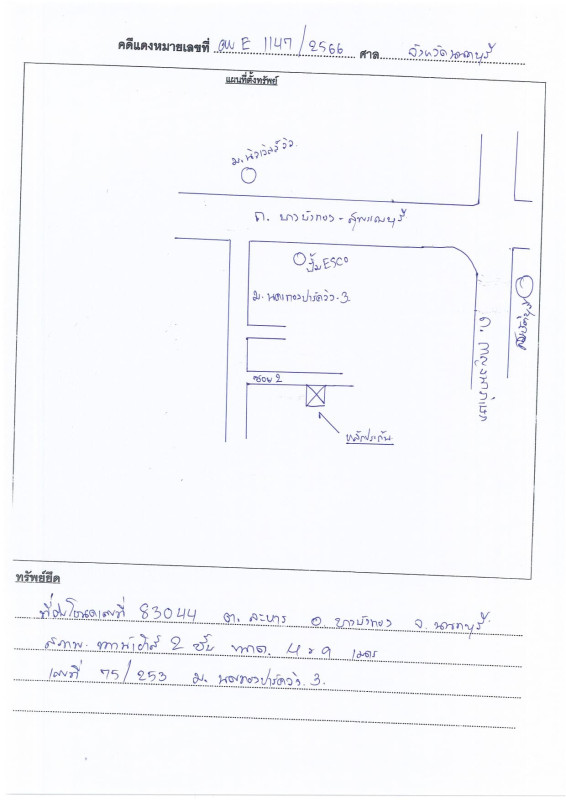 คดีแดงหมายเลขที่ ผบ E 1147/2566 ศาล จังหวัดนนทบุรี
แผนที่ตั้งทรัพย์
ถ. บางบัวทอง - สุพรรณบุรี
ปั๊ม ESCO
ม. พฤกษาปาร์ควิว 3
ซอย 2
หลักประกัน
ทรัพย์ยึด
ที่ดินโฉนดเลขที่ 83044 ต. ละหาร อ. บางบัวทอง จ. นนทบุรี
สภาพ ทาวน์เฮ้าส์ 2 ชั้น ขนาด 4 x 9 เมตร
เลขที่ 75/253 ม. 3.